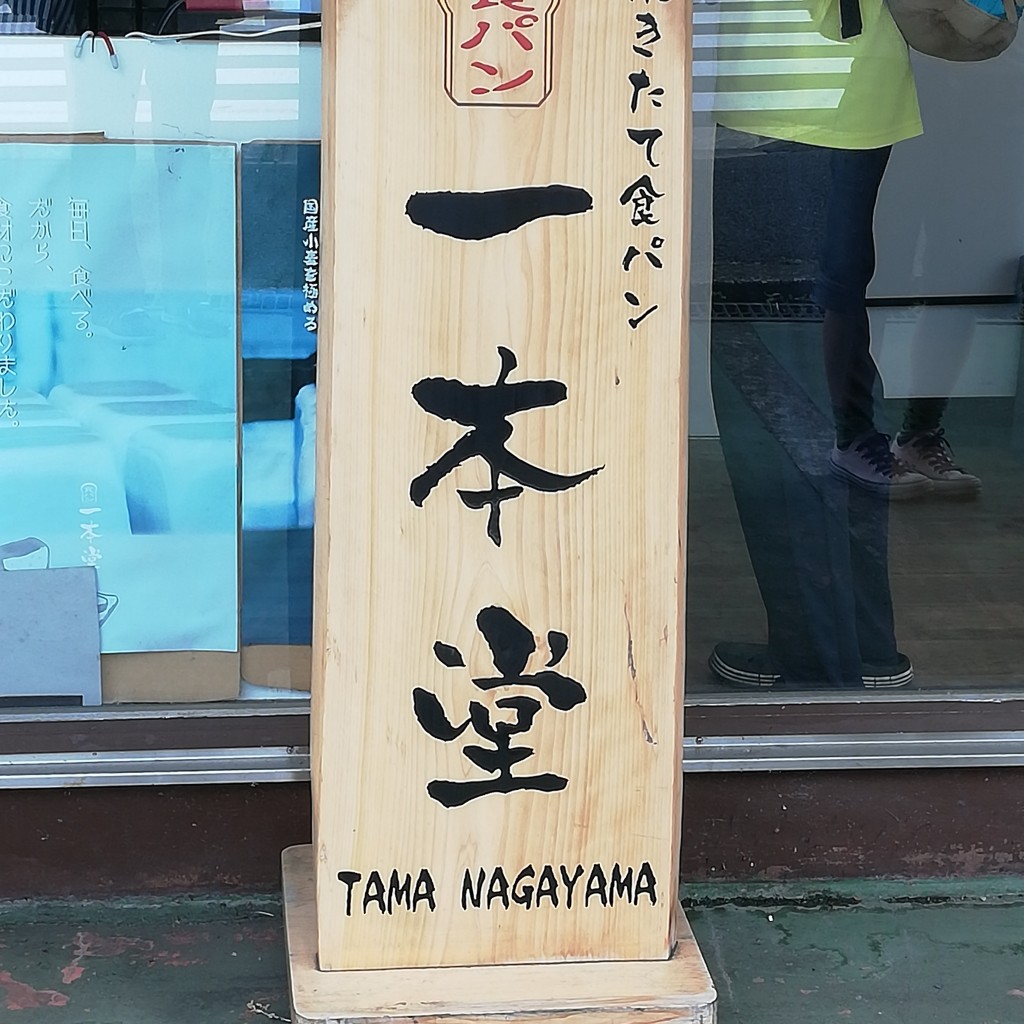 食パン
焼きたて食パン
一本堂
TAMA NAGAYAMA
国産小麦を極める
毎日、食べる。
だから、
食材にこだわりました。
一本堂